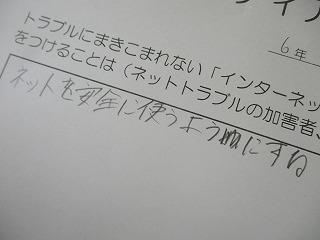 ディア
6年
トラブルにまきこまれない「インターネッ
をつけることは(ネットトラブルの加害者、
ネットを安全に使うようにする